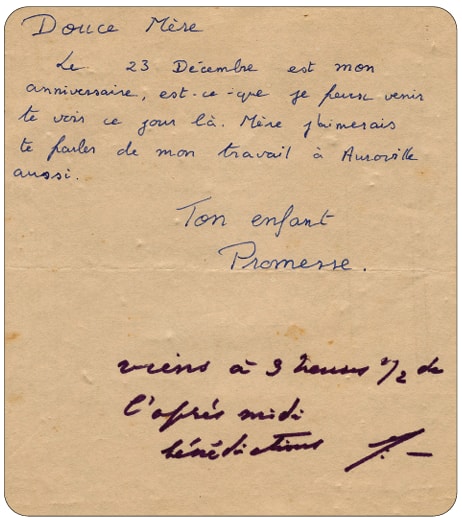 Douce Mère
Le 23 Décembre est mon
anniversaire, est-ce-que je peux venir
te voir ce jour là. Mère j'aimerais
te parler de mon travail à Auroville
aussi.
Ton enfant
Promesse.
viens à 3 heures 1/2 de
l'après midi
bénédictions